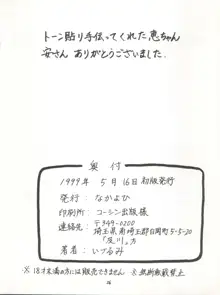 トーン貼り手伝ってくれた恵ちゃん
安さん ありがとうございました.
奥付
1999年 5月16日 初版発行
発行：なかよひ
印刷所：コーシン出版様
連絡先：〒349-0200
埼玉県南埼玉郡白岡町5-5-20
「及川」方
著者：いづるみ
※18才未満の方には販売できません ※無断転載禁止
26